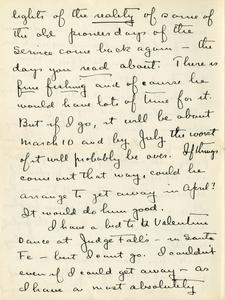 lights of the reality of some of
the old pioneer days of the
Service come back again – the
days you read about. There is
fine fishing and of course he
would have lots of time for it.
But if I go, it will be about
March 10 and by July the worst
of it will probably be over. If things
come out that way, could he
arrange to get away in April?
It would do him good.
I have a bid to a Valentine
Dance at Judge Fall's – in Santa
Fe – but I can't go. I couldn't
even if I could get away – as
I have a most absolutely